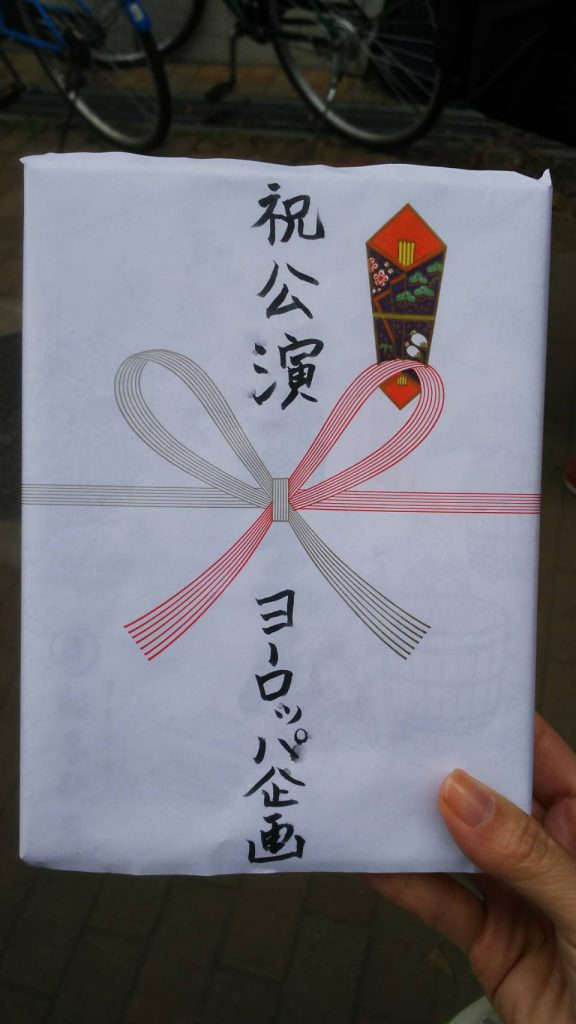 祝公演
ヨーロッパ企画